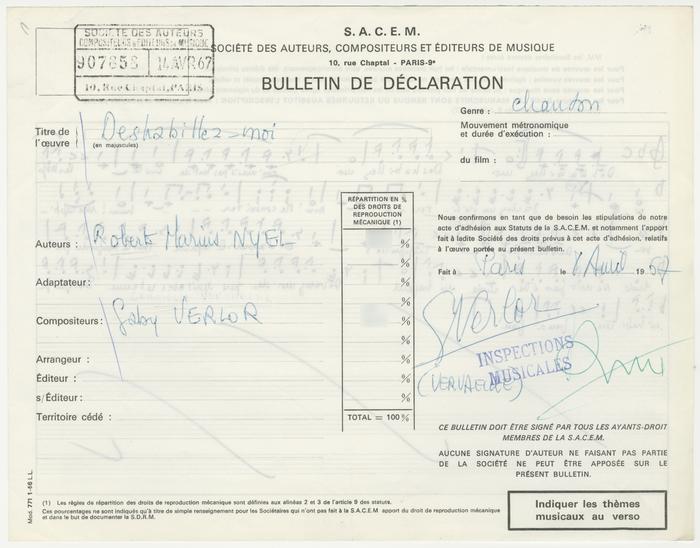 S.A.C.E.M.
SOCIÉTÉ DES AUTEURS
COMPOSITEURS & ÉDITEURS DE MUSIQUE
907853 14 AVR 67
10, rue Chaptal, PARIS
SOCIÉTÉ DES AUTEURS, COMPOSITEURS ET ÉDITEURS DE MUSIQUE
10, rue Chaptal - PARIS-9e
BULLETIN DE DÉCLARATION
Genre : chanson
Titre de l'œuvre (en majuscules) Deshabillez-moi
Mouvement métronomique
et durée d'exécution :
du film :
RÉPARTITION EN %
DES DROITS DE
REPRODUCTION
MÉCANIQUE (1)
Nous confirmons en tant que de besoin les stipulations de notre
acte d'adhésion aux Statuts de la S.A.C.E.M. et notamment l'apport
fait à ladite Société des droits prévus à cet acte d'adhésion, relatifs
à l'œuvre portée au présent bulletin.
Auteurs : Robert Marius NYEL %
%
Fait à Paris le 7 Avril 1967
Adaptateur : %
%
Compositeurs : Gaby VERLOR %
GVerlor
%
INSPECTIONS
MUSICALES
Arrangeur : %
Éditeur : %
s/Éditeur : %
Territoire cédé :
TOTAL = 100 %
CE BULLETIN DOIT ÊTRE SIGNÉ PAR TOUS LES AYANTS-DROIT
MEMBRES DE LA S.A.C.E.M.
AUCUNE SIGNATURE D'AUTEUR NE FAISANT PAS PARTIE
DE LA SOCIÉTÉ NE PEUT ÊTRE APPOSÉE SUR LE
PRÉSENT BULLETIN.
Mod. 771 1-66 L.L.
(1) Les règles de répartition des droits de reproduction mécanique sont définies aux alinéas 2 et 3 de l'article 9 des statuts.
Ces pourcentages ne sont indiqués qu'à titre de simple renseignement pour les Sociétaires qui n'ont pas fait à la S.A.C.E.M apport du droit de reproduction mécanique
et dans le but de documenter la S.D.R.M.
Indiquer les thèmes
musicaux au verso